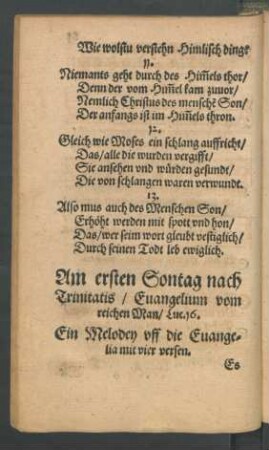 Wie wolstu verstehn Himlisch dinge
11.
Niemants geht durch des Him̃els thor/
Denn der vom Him̃el kam zuuor/
Nemlich Christus des menschẽ Son/
Der anfangs ist im Him̃els thron.
12.
Gleich wie Moses ein schlang auffricht/
Das/ alle die wurden vergifft/
Sie ansehen vnd würden gesundt/
Die von schlangen waren verwundt.
13.
Also mus auch des Menschen Son/
Erhöht werden mit spott vnd hon/
Das/ wer seim wort gleubt vestiglich/
Durch seinen Todt leb ewiglich.
Am ersten Sontag nach
Trinitatis / Euangelium vom
reichen Man/ Luc. 16.
Ein Melodey vff die Euange-
lia mit vier versen.
Es